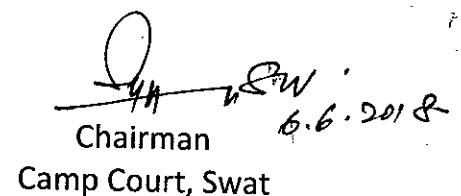 6.6.2018
Chairman
Camp Court, Swat